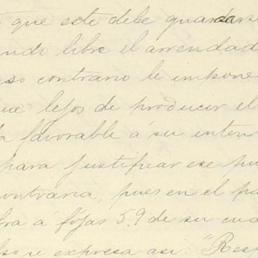 que este debe guardarse
libre el arrendad
so contrario le impone
ue lejos de producir el
favorable a su inten
para justificar ese pu
ontraria, pues en el pa
bra a fojas 59 de su cua
expresa asi: "Resp